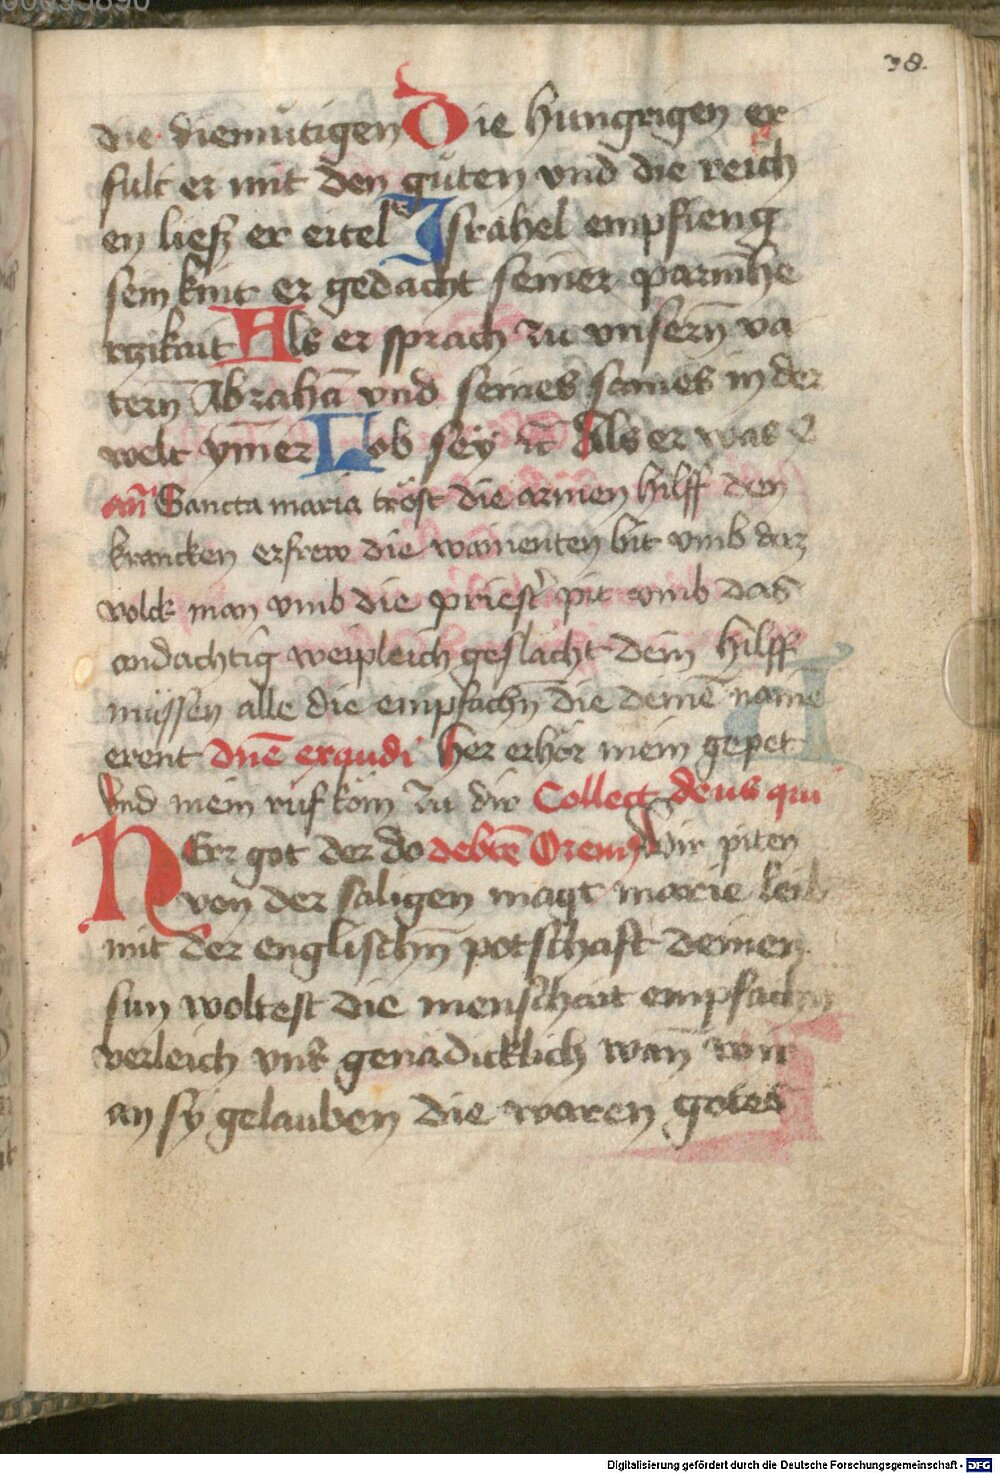 38.
die diemütigen Die hungrigen er
fult er mit den güten vnd die reich
en liesz er eitel Israhel empfieng
sein kint er gedacht seiner parmhe
rtzikait Als er sprach zu vnsern̄ va
tern̄ Abrahā vnd seines sames in der
welt ym̄er Lob sey ꝛc̄ Als er was ꝛ
an̄ Sancta maria tröst die armen hilff den
krancken erfrew die wainenten bit vmb daz
volck man vmb die priest̾ pit vmb das
andachtig weipleich geslächt dein hilff
müssen alle die empfachn̄ die deinē name
erent dn̄e exaudi her erhör mein gepet
Vnd mein rüf köm zu dir Collect deus qui
HErr got der do debr̄e Oremꝰ Wir piten
von der saligen magt marie leib
mit der englischn̄ potschaft deinen
sun woltest die menschait empfachn
verleich vns genädicklich wan̄ wir
an sy gelauben die waren gotes
Digitalisierung gefördert durch die Deutsche Forschungsgemeinschaft - DFG